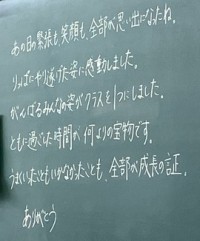 あの日の緊張も笑顔も、全部が思い出になったね。
りっぱにやり遂げた姿に感動しました。
がんばるみんなの姿がクラスを1つにしました。
ともに過ごした時間が何よりの宝物です。
うまくいったこともいかなかったことも、全部が成長の証。
ありがとう